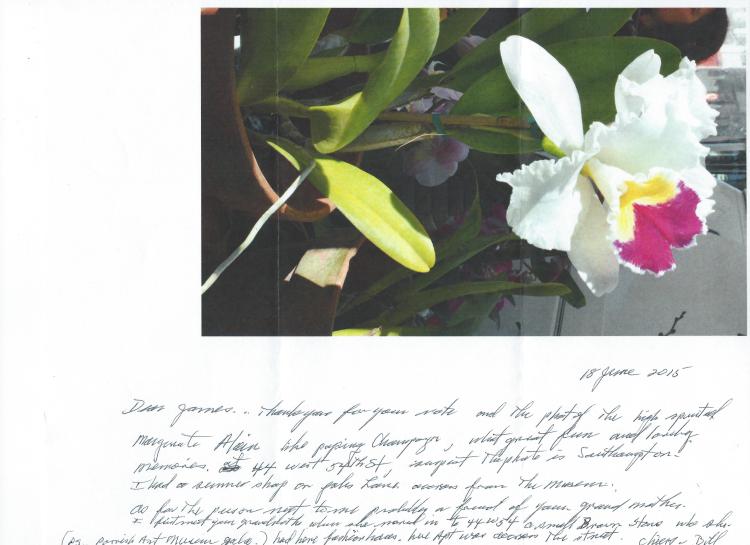 18 June 2015
Dear James.. Thank you for your note and the photo of the high spirited
Marguerite like popping Champagne, what great fun and loving
memories. 44 west 54th St, the photo is Southampton.
I had a summer shop on Jobs Lane across from the Museum.
As for the person next to me probably a friend of your grand mother.
I first met your grandmother when she moved in to 44 W 54 a small Brown Stone who she
(eg. Parrish Art Museum) had here fashion, her Apt was across the street. Cheers - Bill